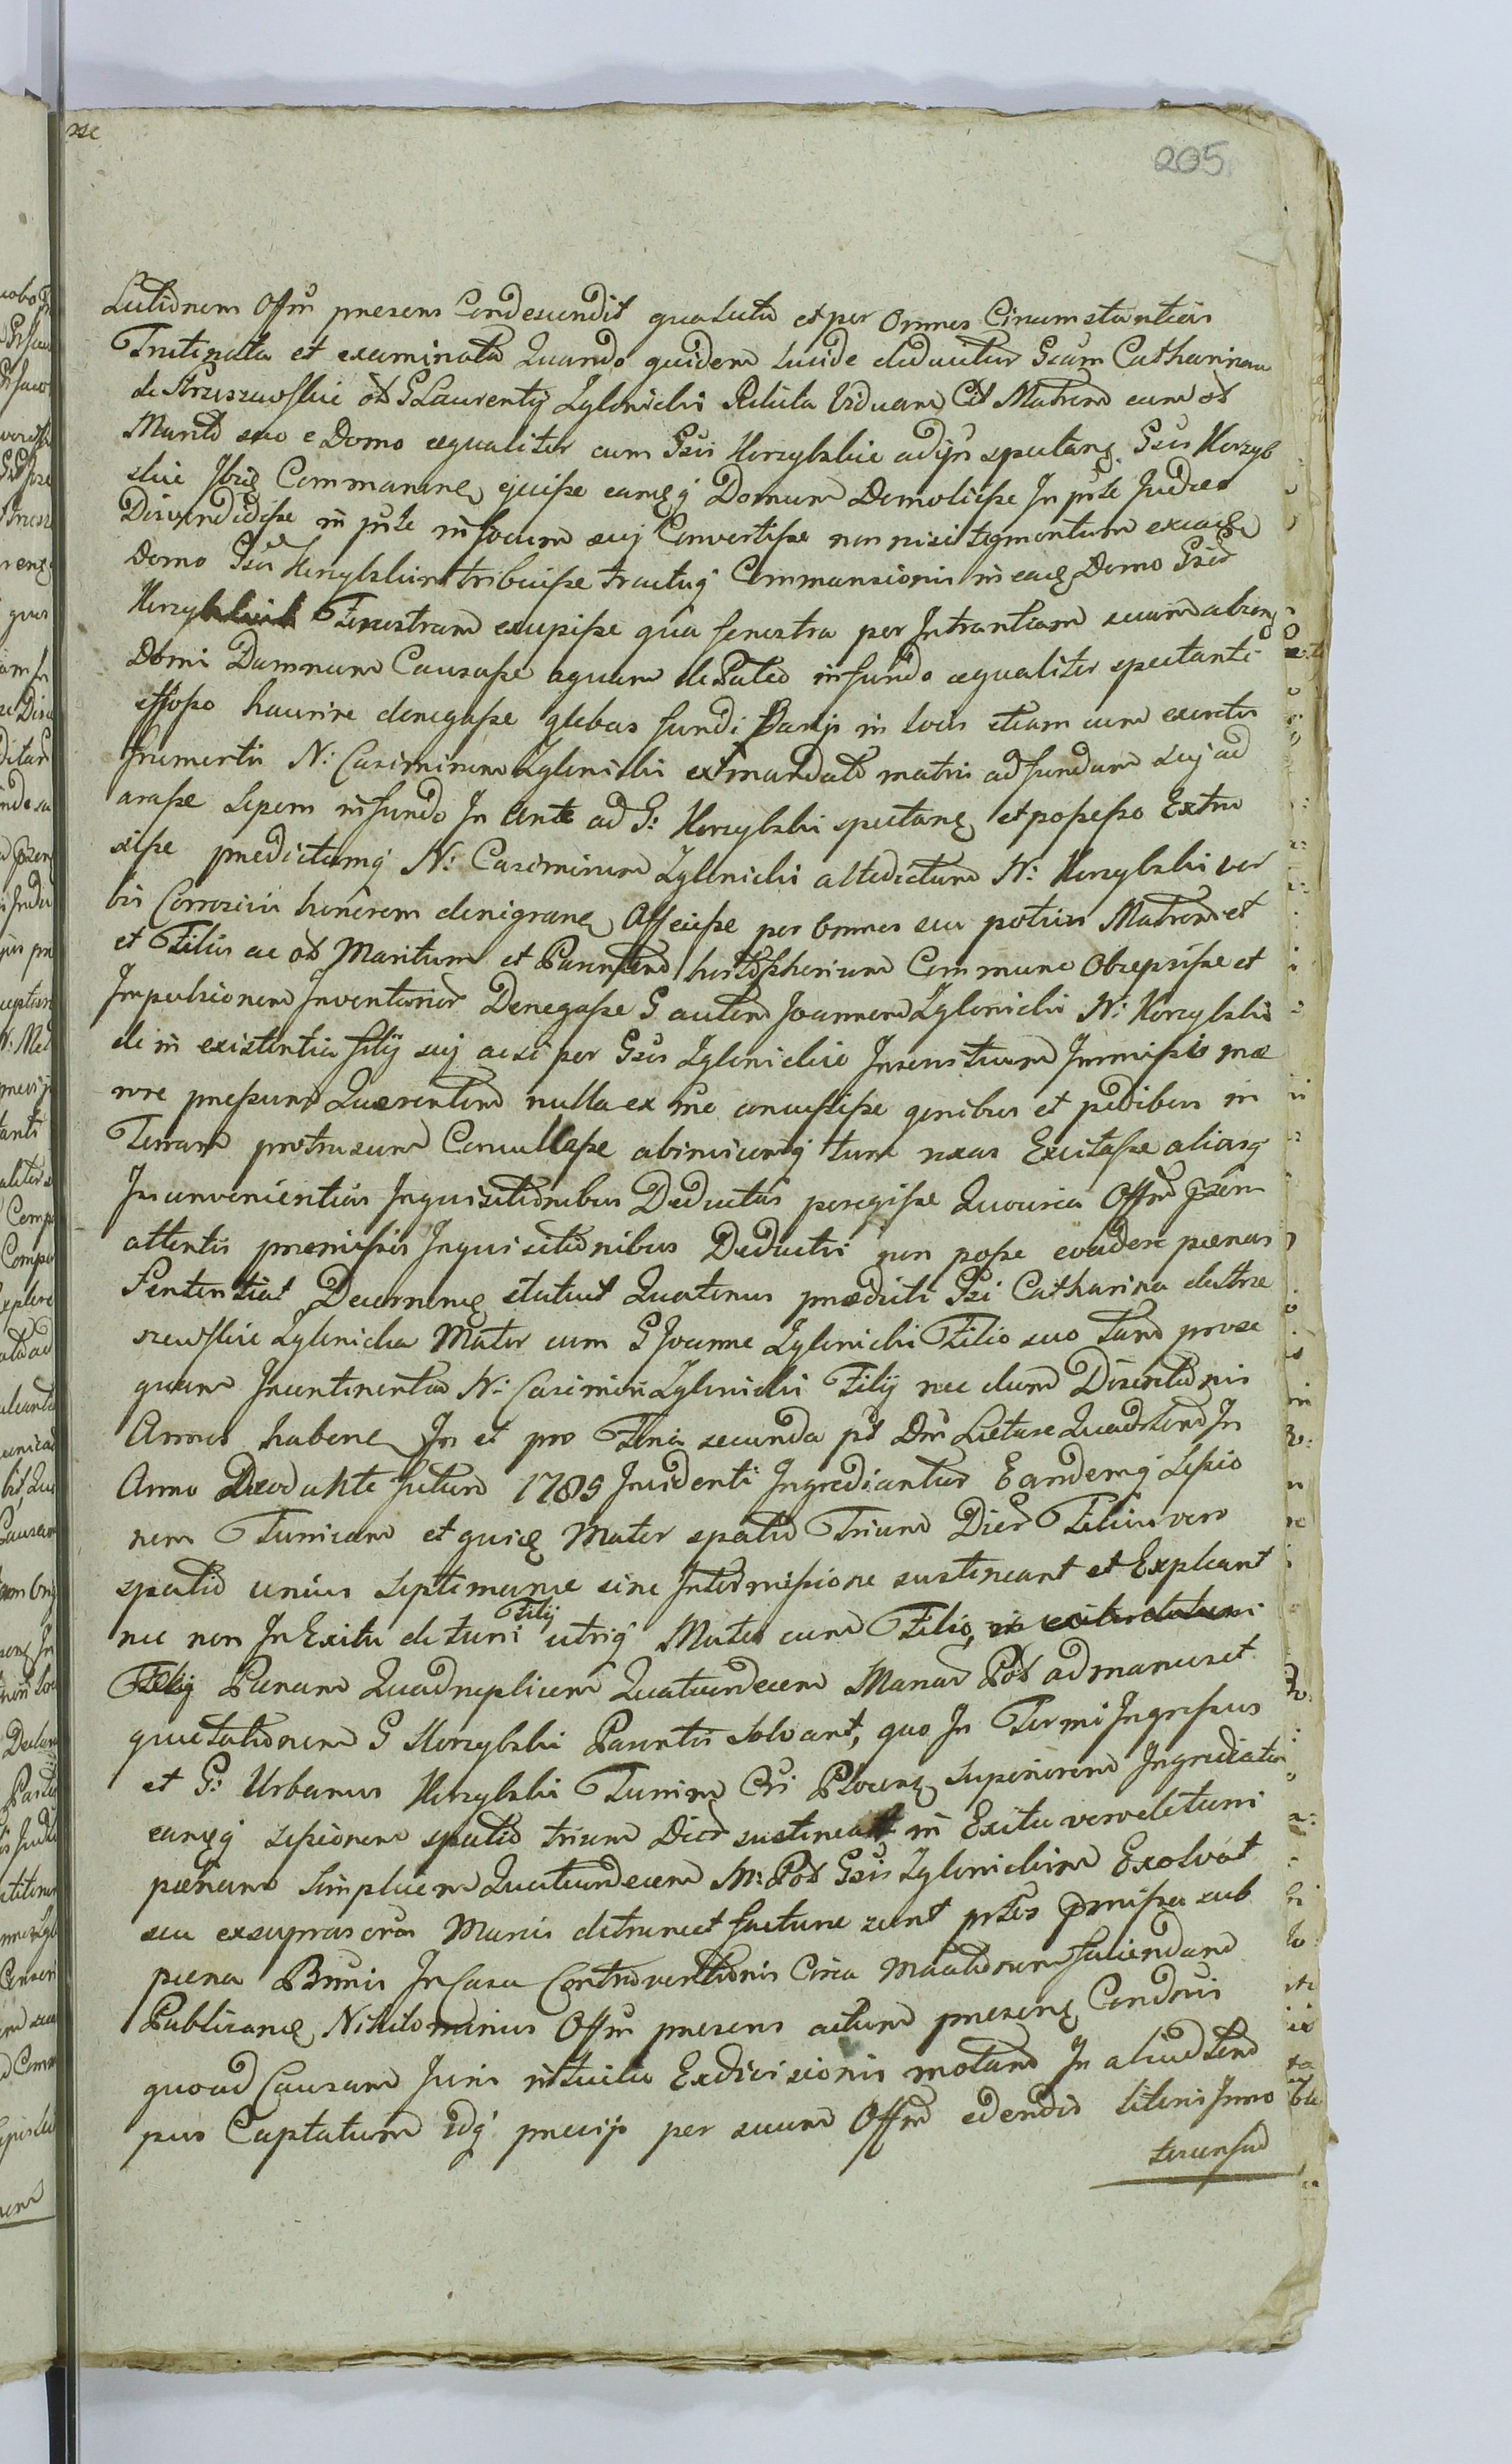 205
Lutionem Offm presens Condescendit qua Luta et per Omnes Circumstantias
Trutinata et examinata Quando quidem lucide deducitur Gsam Catharinam
de Struszewskie ol G Laurentij Zglenicki Relicta Viduam Matrem cum ol
Marito suo e Domo aequaliter cum Gsis Korzybskie spectane Gsis Korzyb
skie Ibid Commorane ejecisse eamq Domum Demolisse In pste Judaeo
Divendidisse in pste in focum suj Convertisse non nisi tegmentum ex eade
Domo Gsis Korzybskim tribuisse tractuq Commansionis in eade Domo Gsis
Korzybskich Fenestram excepisse qua fenestra per Intrantiam suam absenq
Domi Damnum Causasse aquam de Puteo in fundo aequaliter spectanti
effosso haurire denegasse glebas fundi Banij in locis etiam cum exortis
frumentis N: Casimirum Zglenicki ex mandato matris ad fundum suj ad
arasse Sepem in fundo In Ante ad G: Korzybski spectane et possesso Extru
xisse predictumq N: Casimirum Zglenicki attedictum N: Korzybski ver
bis Corrosivis honorem denigrane Affecisse per omnes seu potius Matrem et
et Filios ac ol Maritum et Parentem Commune Obrepsisse et
Impulsionem Inventarior Denegasse G autem Joannem Zglenicki N: Korzybski
de in existentia filij suj acsi per Gsos Zglenickie Immissio mæ
rore pressum Quærentem nulla ex re concussisse genibus et pedibus in
Terram protrusum Convulsasse abinvicemq tum rixas Excitasse aliasq
Inconvenientias Inquisitionibus Deductas peregisse Quocirca Offm psens
attentis præmissis Inquisitionibus Deductis non posse evadere pænas
Sententiat Decernenq statuit Quatenus prædicti Gsi Catharina de Strze
szewskie Zglenicka Mater cum G Joanne Zglenicki Filio suo tam prose
quam Incontinentia N: Casimiri Zglenicki Filij nec dum Discretionis
Annos habene In et pro Feria secunda pt Dm Lætare Quadrlem In
Anno futuro 1789 Incidenti Ingrediantur Eandemq Sessio
nem Turricam et quide Mater spatio Trium Dier Filius vero
spatio unius Septimanæ sine Intermissione sustineant et Expleant
nec non In Exitu de turri Filij utriq Mater cum Filio, in exitu de turri
Filij Pænam Quadruplicem Quatuordecem Marcar Pol ad manus et
quietationem G Korzybski Parentis solvant, quo In Termi Ingressus
et G: Urbanus Korzybski Turrim Cri Plocens Superiorem Ingrediatur
eamq sessionem spatio trium Dier sustineat in Exitu vero de turri
pænam simplicem Quatuordecem M: Pol Gsis Zglenickim Exolvat
seu ex suprascris Marcis detruncet facturæ sunt ptes pmissa sub
pæna Bnnis In Casu Controventionis Circa Maationem faciendam
Publicande Nihilominus Offm presens actum presene Conduis
quoad Causam Juris intuitu Exdivisionis motam In aliud tem
pus Captatum idq precijs per suum Offm edendis literis Inno
tescensu